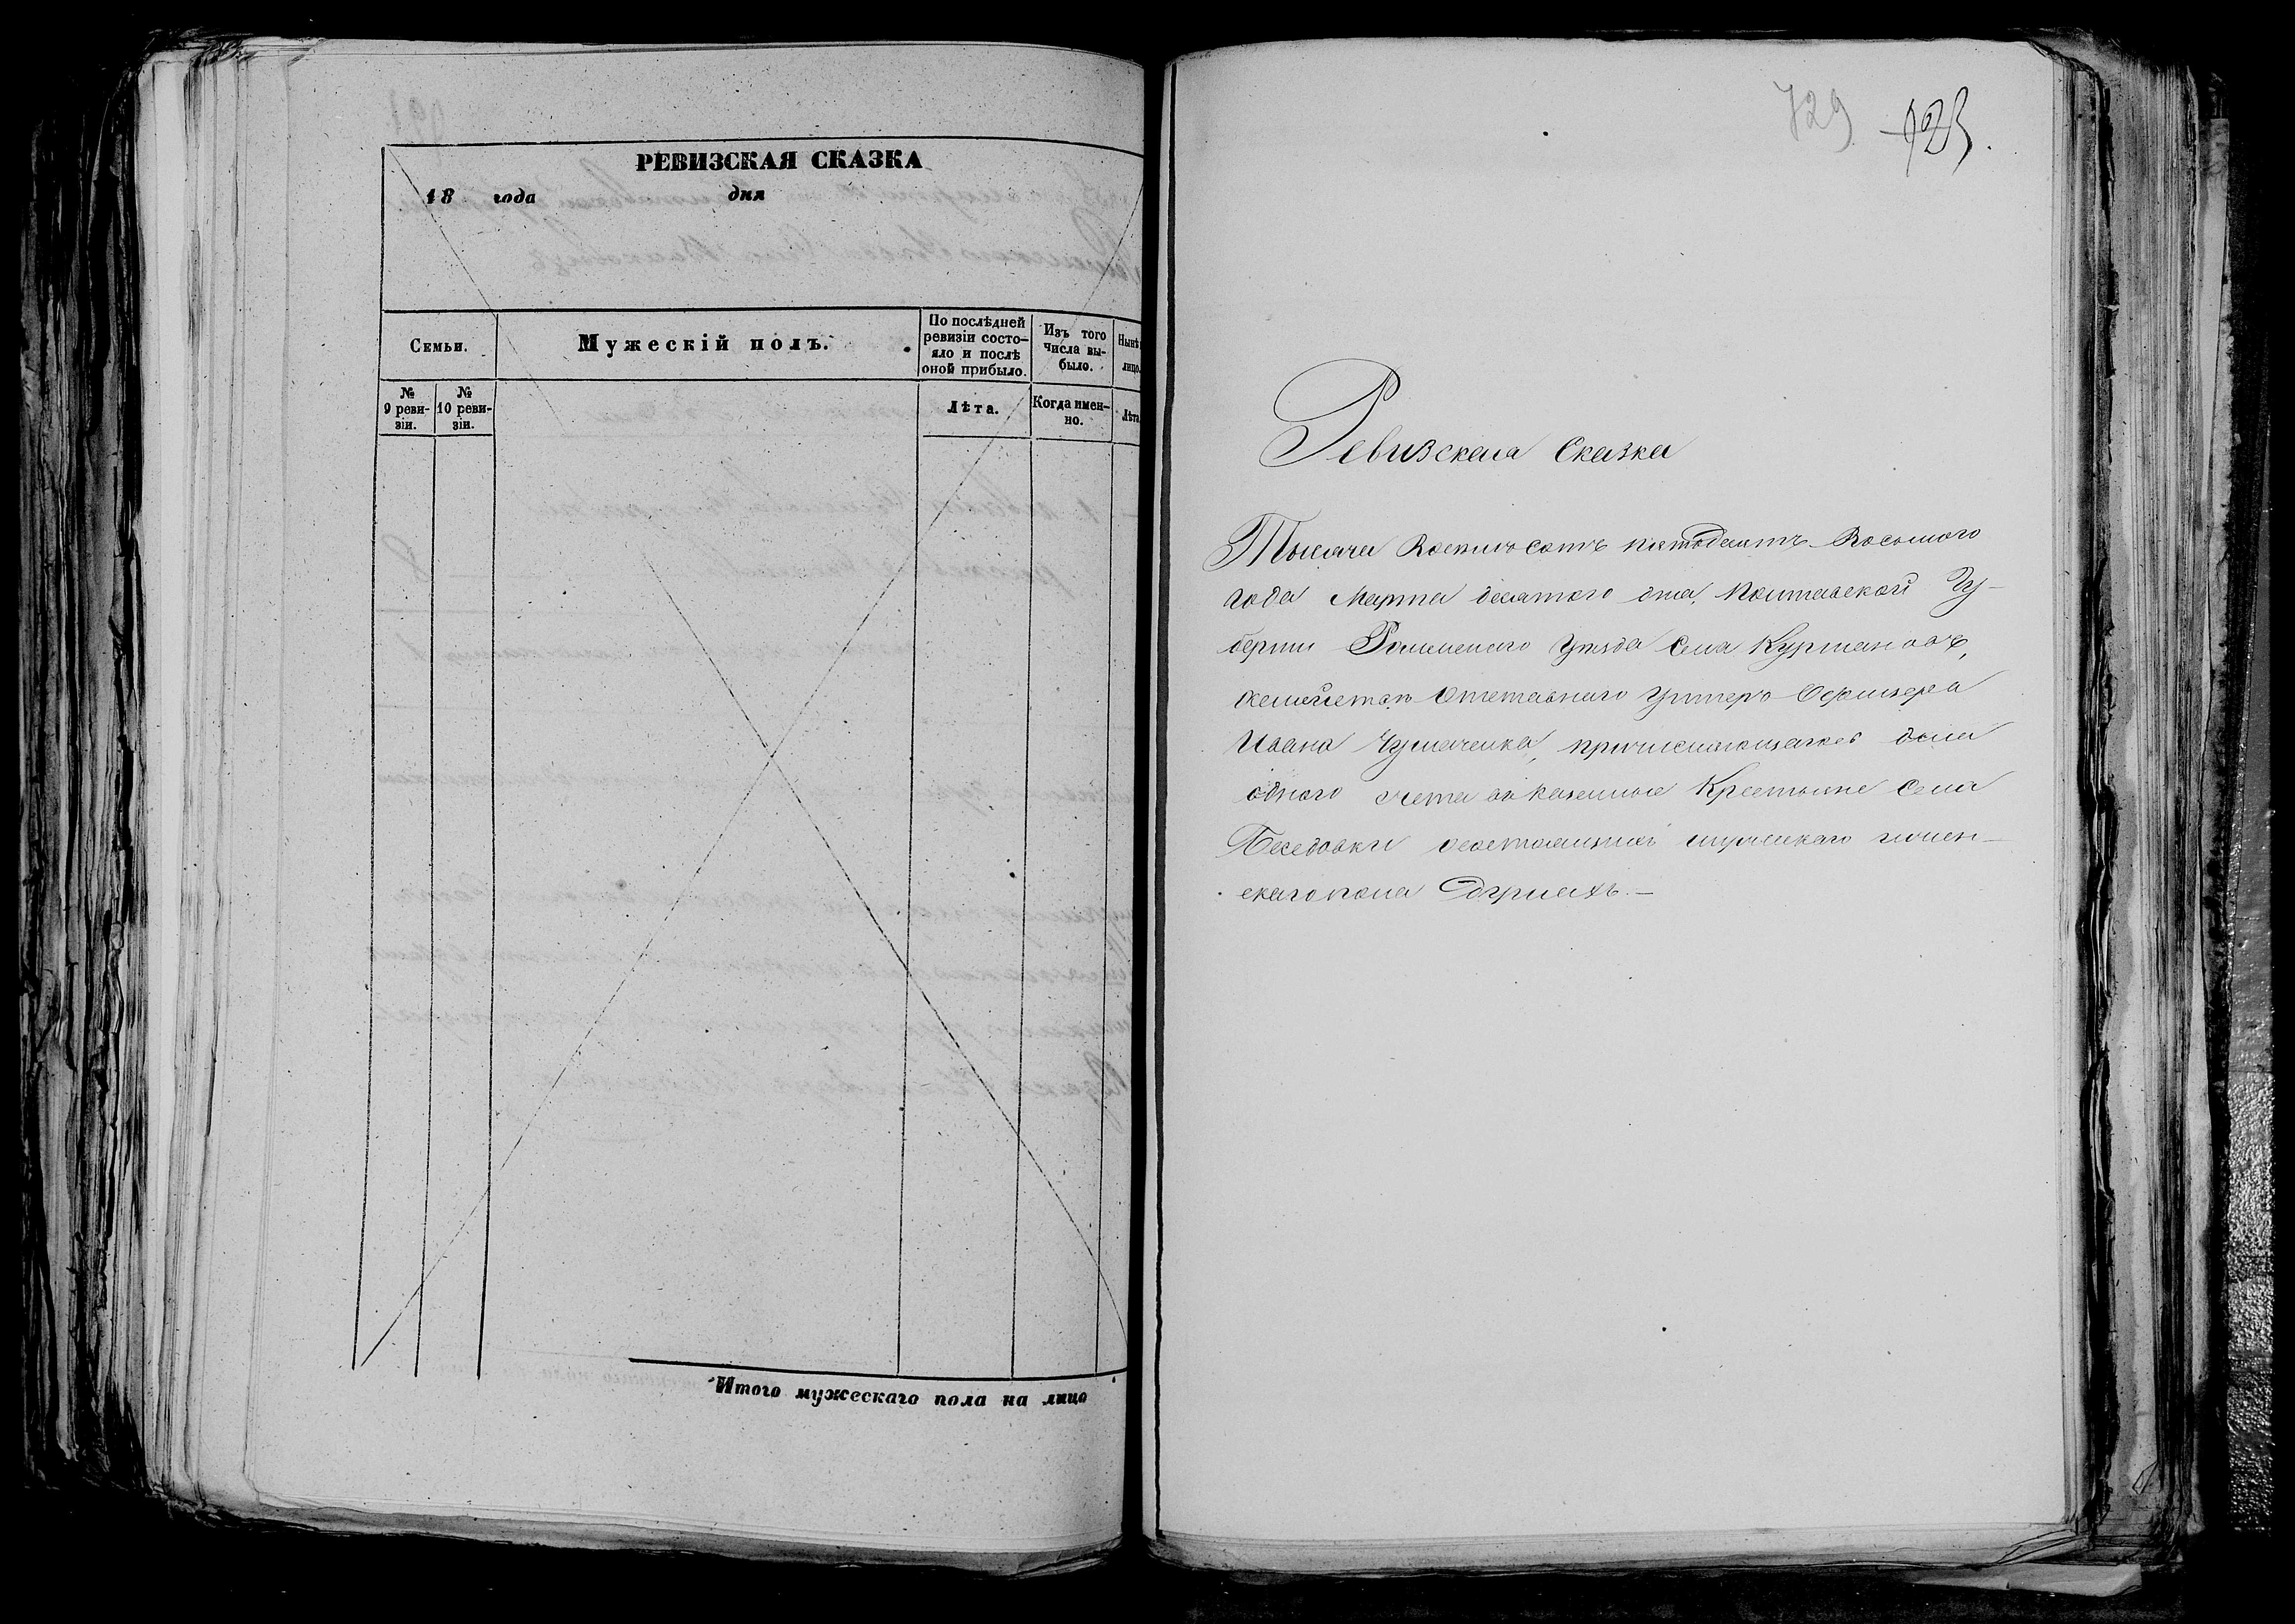 РЕВИЗСКАЯ СКАЗКА
18 года дня
Семьи.
Мужескій полъ.
По послѣдней
ревизіи состо-
яло и послѣ
оной прибыло.
Изъ того
числа вы-
было.
Нынѣ
лицо.
№
9 реви-
зіи.
№
10 реви-
зіи.
Лѣта.
Когда имен-
но.
Лѣта
Итого мужескаго пола на лицо
729
Ревизская Сказка
Тысяча Восемьсотъ пятдесятъ Восьмого
года Марта десятого дня, Полтавской Гу-
берніи Роменского Уѣзда Села Курмановъ,
Отставнаго Унтеръ Офицера
Ивана Чумаченка, причисляющагося для
одного счета въ казенные Крестьяне Села
Беседовки мужескаго женс-
скаго пола душахъ.—